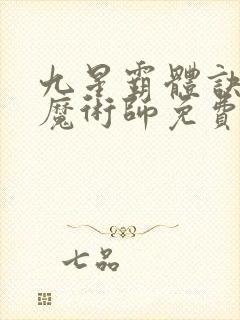 九星霸體訣
魔術師免費
七品